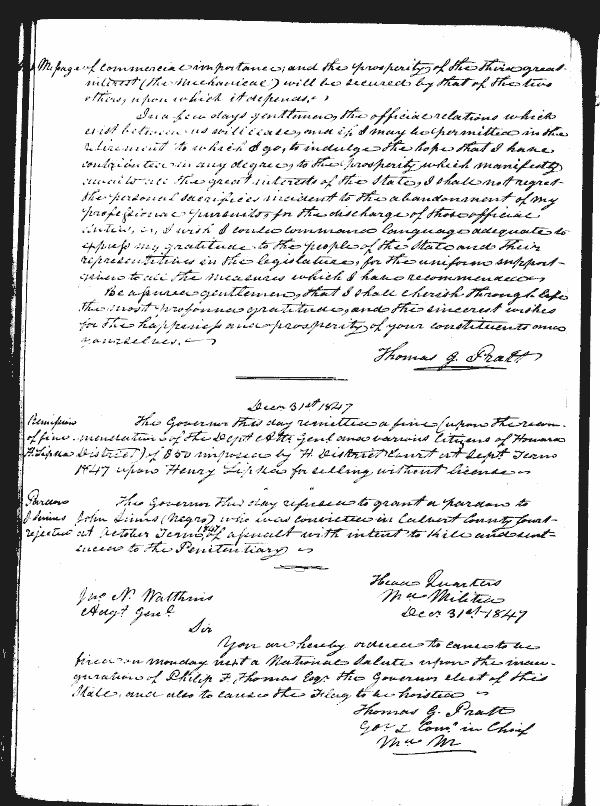 Message of commercial importance, and the prosperity of the third great
interest (the Mechanical) will be secured by that of the two
others, upon which it depends.
In a few days gentlemen, the official relations which
exist between us will cease, and if I may be permitted in the
retirement to which I go, to indulge the hope that I have
contributed in any degree, to the prosperity which manifestly
awaits all the great interests of the State, I shall not regret
the personal sacrifices incident to the abandonment of my
professional pursuits, for the discharge of those official
duties, I wish I could command language adequate to
express my gratitude to the people of the State and their
representatives in the legislature, for the uniform support
given to all the measures which I have recommended,
Be assured gentlemen, that I shall cherish through life
the most profound gratitude, and the sincerest wishes
for the happiness and prosperity of your constituents and
yourselves.
Thomas G. Pratt
Decr 31st 1847
Remission
of fine
H. Lipka
The Governor this day remitted a fine (upon the recom-
mendation of the Dept Att. Genl and various Citizens of Howard
District) of $50 imposed by H. District Court at Sept Term
1847 upon Henry Lipka for selling without license
Pardon
J Simms
rejected
The Governor this day refused to grant a pardon to
John Simms (Negro) who was convicted in Calvert County Court
at October Term 1847 of assault with intent to Kill and sent-
enced to the Penitentiary
Head Quarters
Md Militia
Decr 31st 1847
Jno N. Watkins
Adgt Genl
Sir
You are hereby ordered to cause to be
fired on monday next a National Salute upon the inau-
guration of Philip F. Thomas Esqr the Governor elect of this
State, and also to cause the Flag to be hoisted
Thomas G. Pratt
Gov & Comr in Chief
Md M